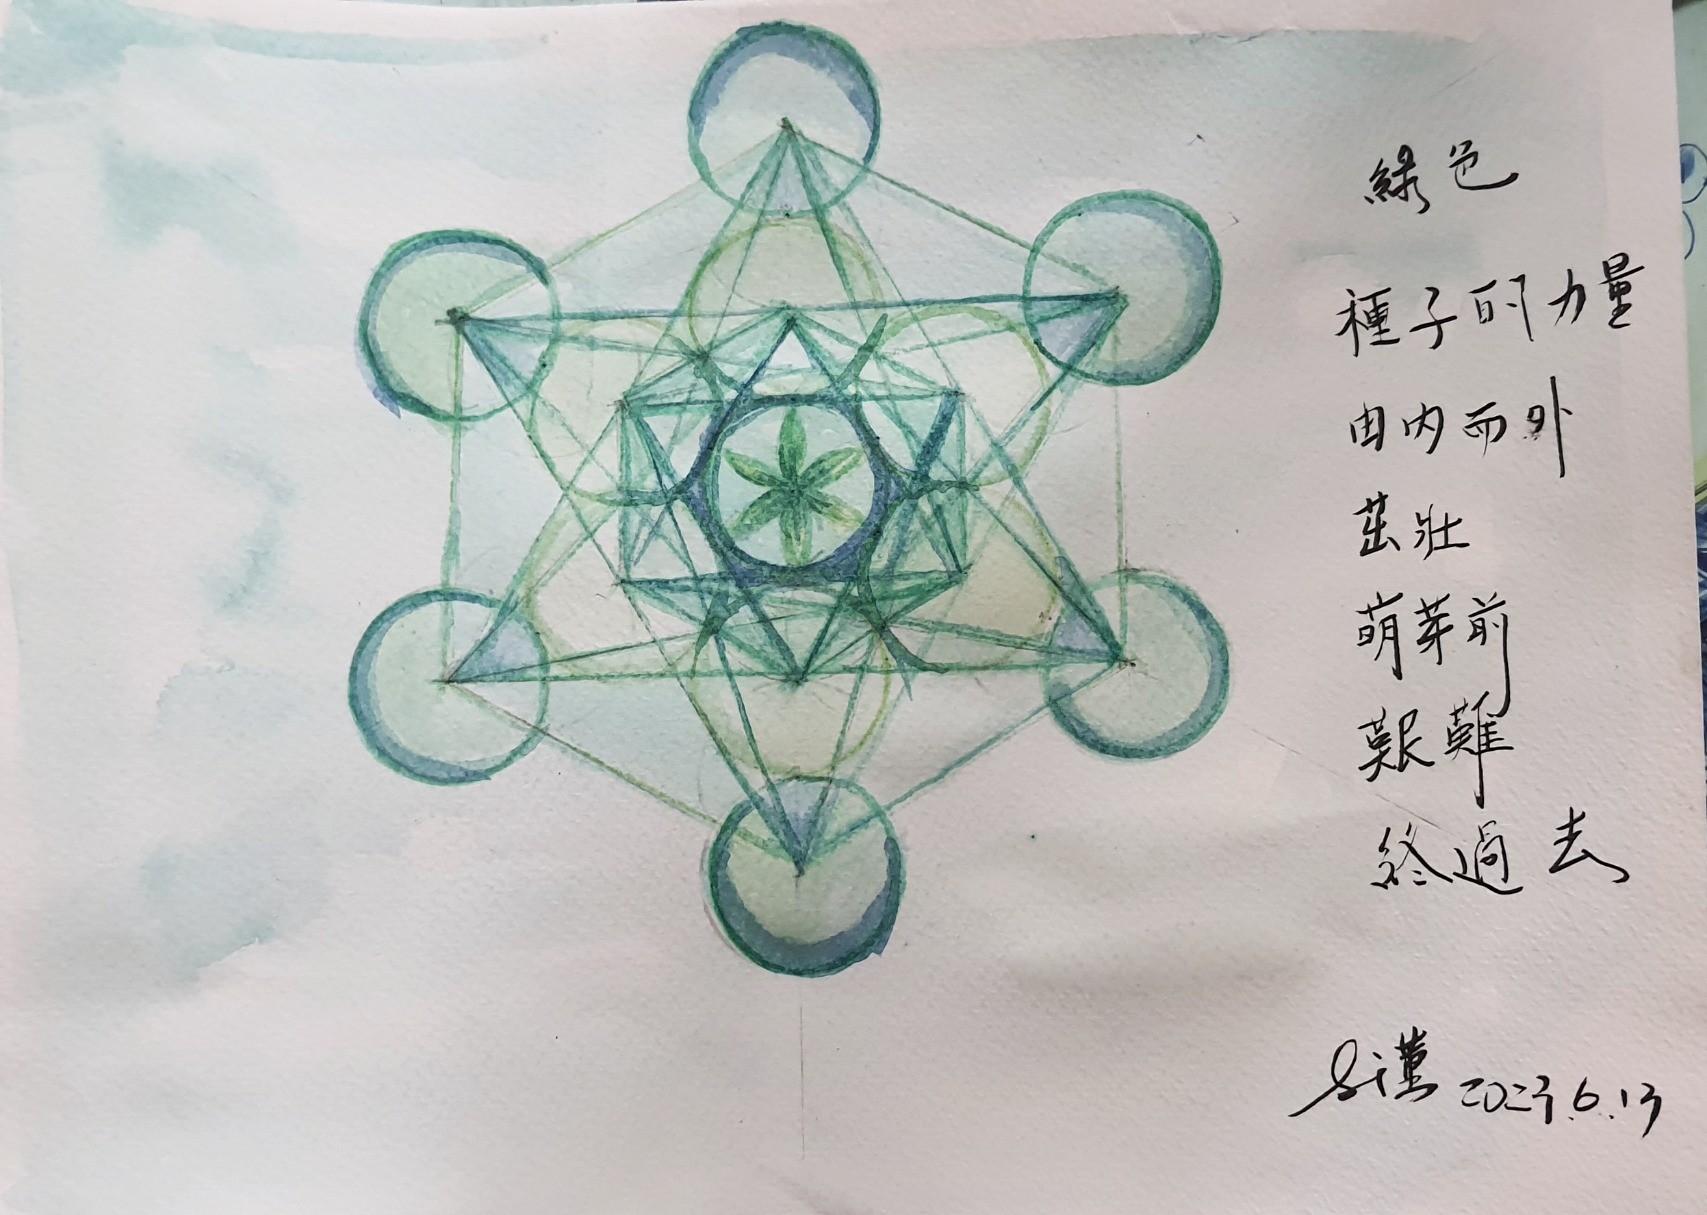 綠色
種子的力量
由内而外
茁壯
萌芽前
艱難
終過去
2023.6.13